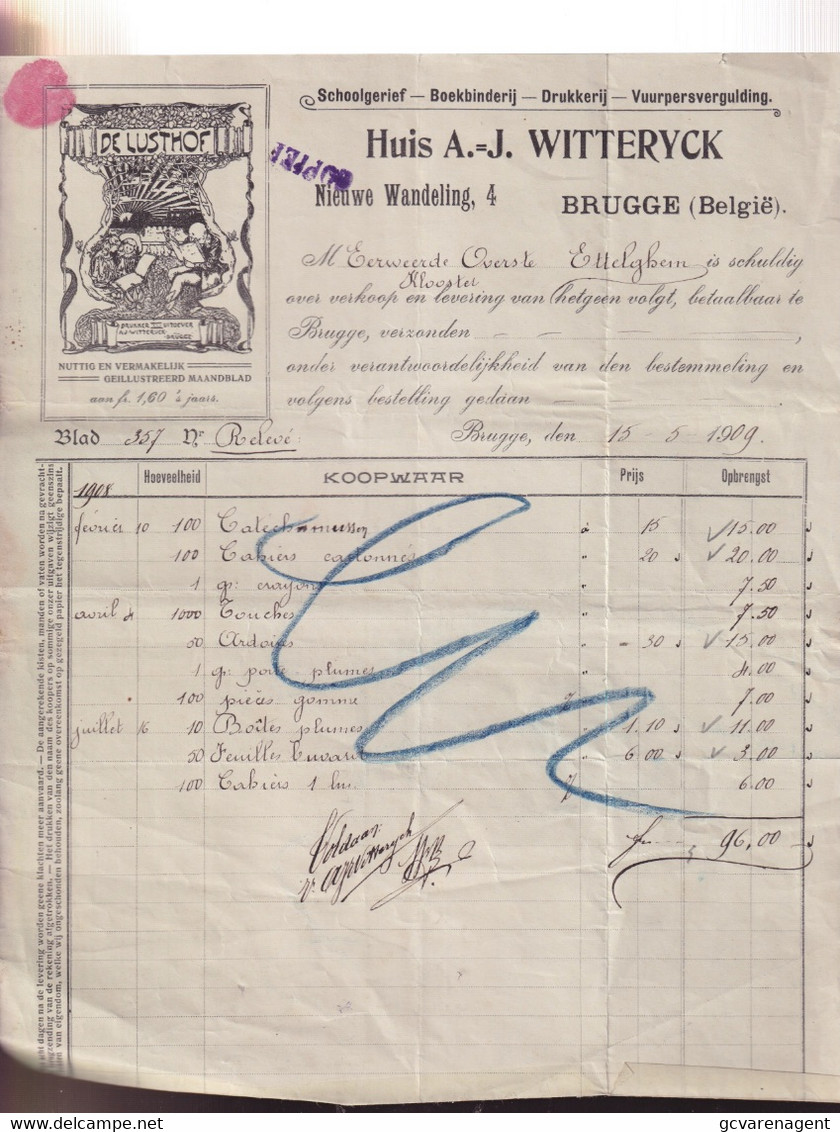 Schoolgerief — Boekbinderij — Drukkerij — Vuurpersvergulding.
Huis A.=J. WITTERYCK
Nieuwe Wandeling, 4 BRUGGE (België).
COPIEF
DE LUSTHOF
DRUKKER UITGEVER
A.J. WITTERYCK
BRUGGE
NUTTIG EN VERMAKELIJK
GEILLUSTREERD MAANDBLAD
aan fr. 1,60 's jaars.
M Eerweerde Overste Ettelghem is schuldig
Klooster
over verkoop en levering van hetgeen volgt, betaalbaar te
Brugge, verzonden — — — — —
onder verantwoordelijkheid van den bestemmeling en
volgens bestelling gedaan — — —
Blad 357 Nr Relevé: Brugge, den 15-5-1909.
Hoeveelheid KOOPWAAR Prijs Opbrengst
1908
février 10 100 Catechismussen à 15 15.00
100 Cahiers cartonnés " 20 20.00
1 gr. crayons " 7.50
avril 4 1000 Touches " 7.50
50 Ardoises " 30 15.00
1 gr. porte-plumes " 4.00
100 pièces gomme 7.00
juillet 16 10 Boîtes plumes " 1.10 11.00
50 Feuilles buvard " 6.00 3.00
100 Cahiers 1 lin. 6.00
96.00
Voldaan
AJWitteryck
dagen na de levering worden geene klachten meer aanvaard. — De aangerekende kisten, manden of vaten worden na gevracht-
zending van de rekening afgetrokken. — Het drukken van den naam des koopers op sommige onzer uitgaven wijzigt geenszins
van eigendom, welke wij ongeschonden behouden, zoolang geene overeenkomst op gezegeld papier het tegenstrijdige bepaalt.
delcampe.net
gcvarenagent